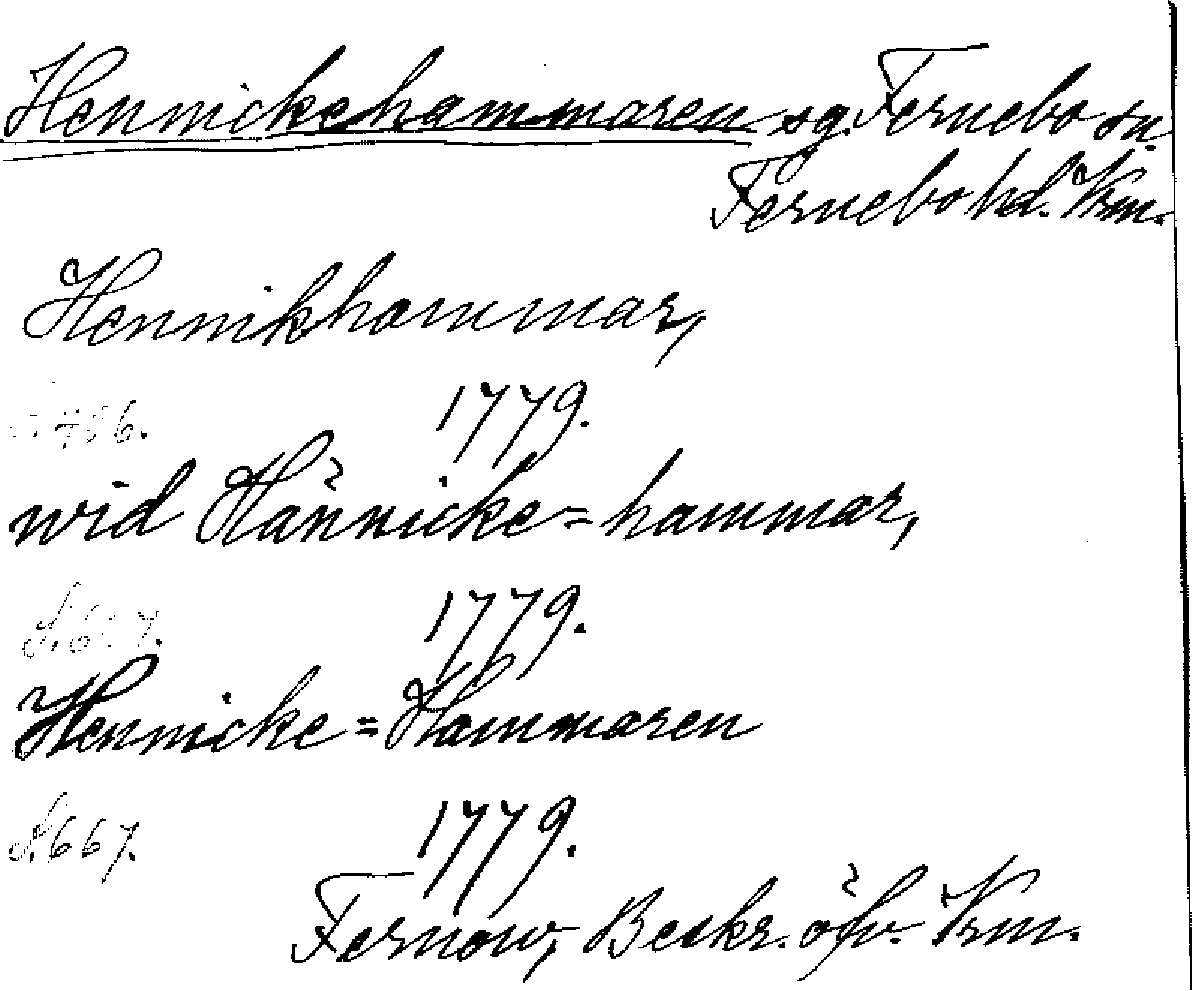 Hennickehammaren sg. Fernebo sn
Fernebo hd. Vrm.
Hennikhammar,
1779.
wid Hännicke=hammar,
1779.
Hennicke=Hammaren
S. 667. 1779.
Fernow, Beskr. öfv. Vrm.